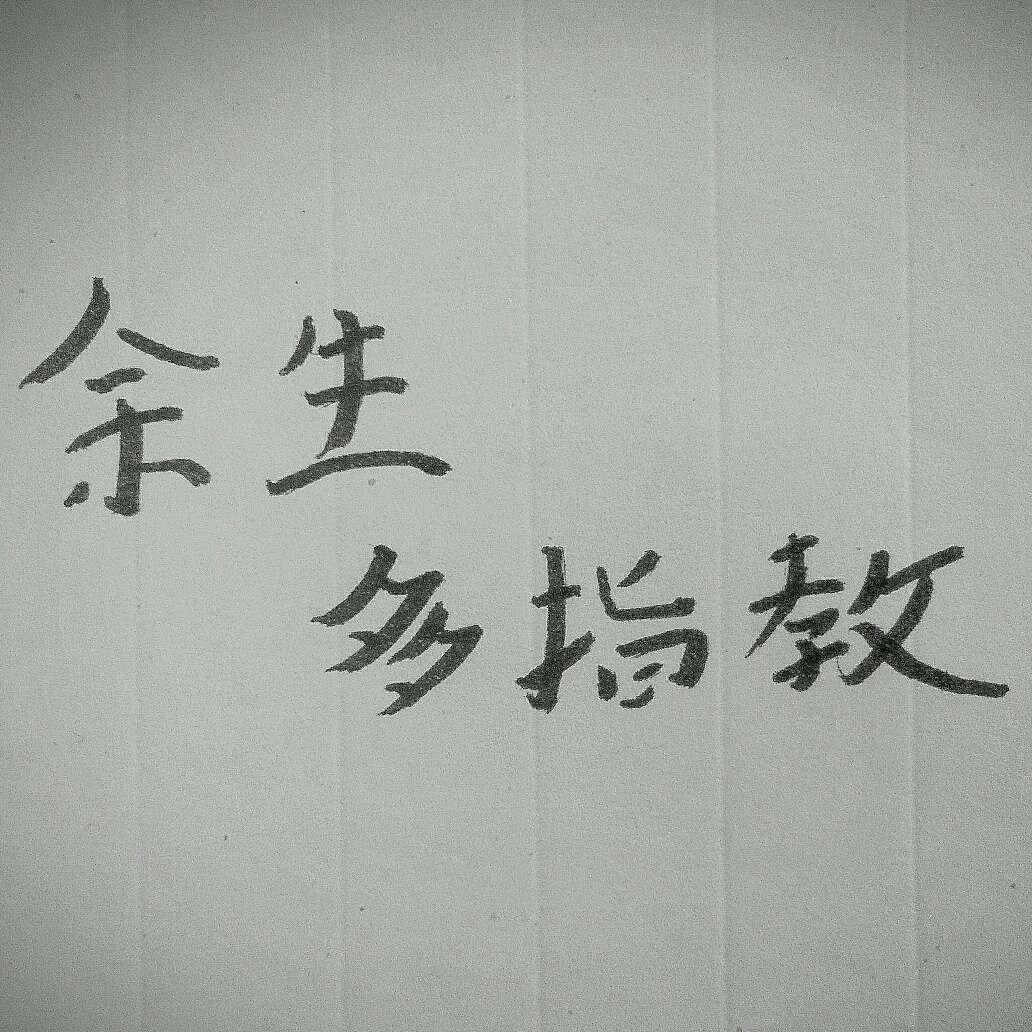 余生
多指教